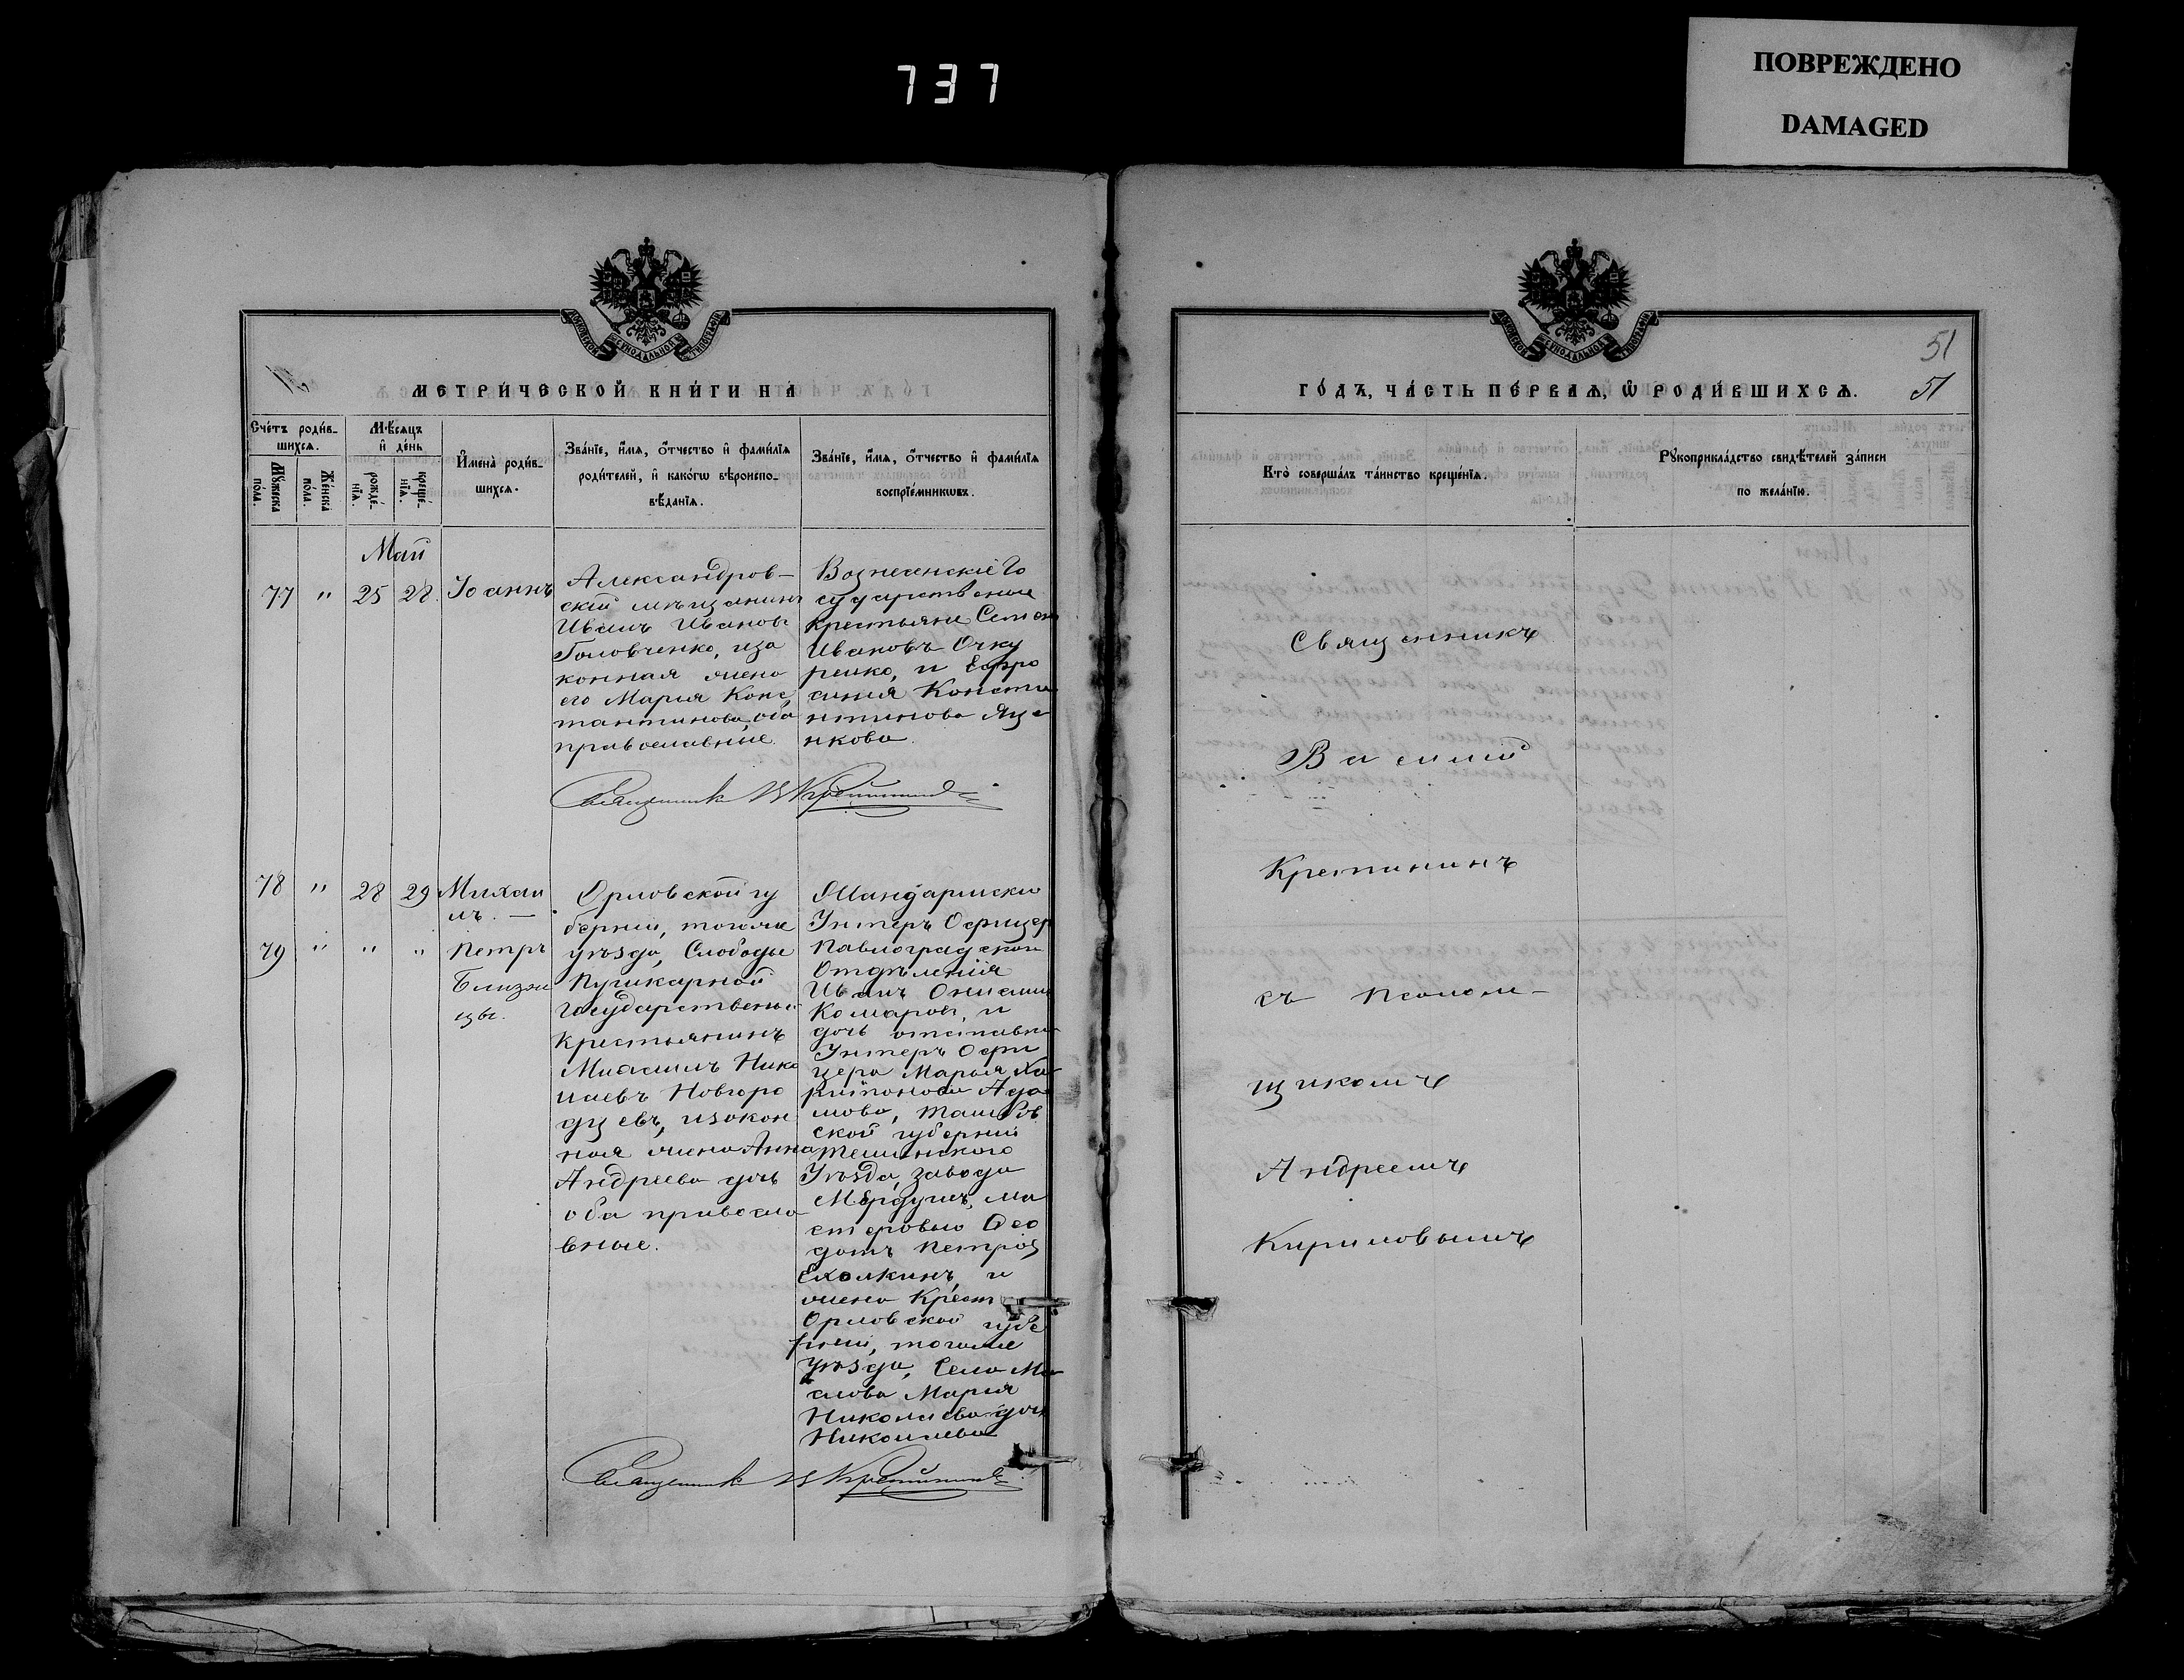 737
ПОВРЕЖДЕНО
DAMAGED
МЕТРИЧЕСКОЙ КНИГИ НА
Счетъ родив-
шихся.
Мужеска
пола.
Женска
пола.
Мѣсяцъ
и день
рожде-
нія.
креще-
нія.
Имена родив-
шихся.
Званіе, имя, отчество и фамилія
родителей, и какогѡ вѣроиспо-
вѣданія.
Званіе, имя, отчество и фамилія
воспріемникѡвъ.
Май
77 " 25 28 Іоаннъ
Александров-
скій мѣщанинъ
Иванъ Ивановъ
Головченко, иза
конная жена
его Марья Конс
тантинова, оба
православные.
Вознесенскіе Го
сударственые
крестьяне Семенъ
Ивановъ Очку
ренко, и Ефро
синия Конста
нтинова Яце
нкова.
Священник В Крапинин
78 " 28 29 Михаи
лъ. —
79 " " " Петръ
Близне
цы.
Орловской гу
берніи, тогоже
уѣзда, Слободы
Пушкарной
Государственый
крестьянинъ
Нико
лаевъ Новгоро
дцевъ, изакон
ная жена Анна
Андреева дочь
оба правосла
вные.
Жандармский
Унтеръ Офицер
Павлоградскаго
Отдѣления
Иванъ
Комаров, и
дочь отставна
Унтеръ Офи
цера Марья Ха
ритонова Ада
мова, Тамбов
ской губерніи
Темниковского
Уѣзда, завода
ма
стеровые Фео
дотъ Петров
Елалкинъ, и
жена Крест
Орловской губе
рніи, тогоже
Уѣзда, Села Ма
слова Марья
Николаева дочь
Николаева
Священник В Крапинин
51
ГОДЪ, ЧАСТЬ ПЕРВАЯ, Ѡ РОДИВШИХСЯ.
51
Кто совершалъ таинство крещенія.
Рукоприкладство свидѣтелей записи
по желанію.
Священникъ
Василий
Крапининъ
съ Псалом-
щикомъ
Андреемъ
Кириловымъ